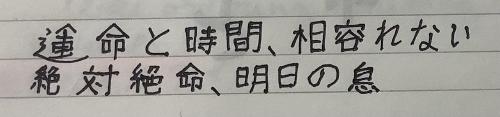 運命と時間、相容れない
絶対絶命、明日の息